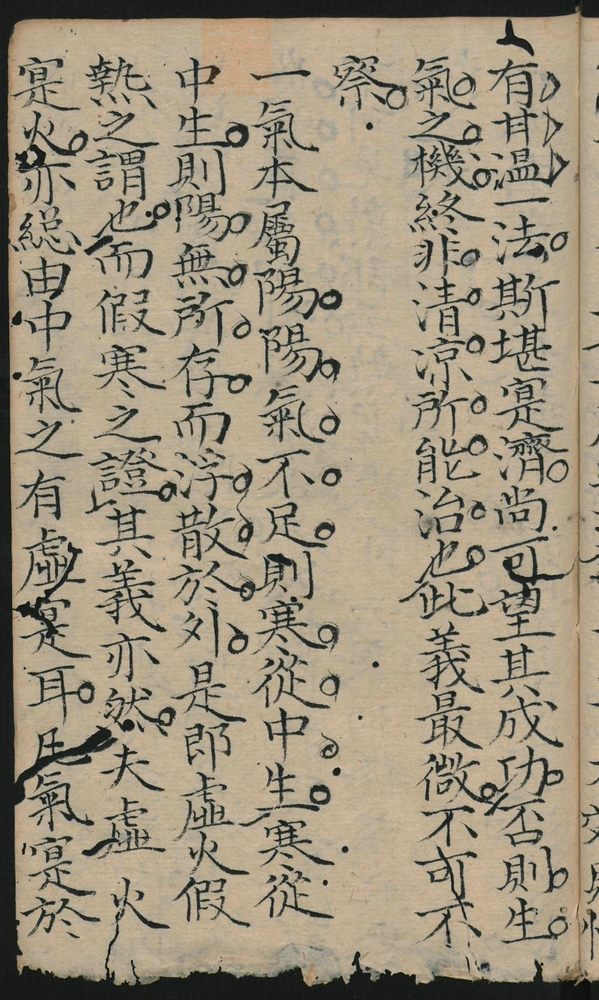 有甘温一法斯堪寔濟尚可望其成功否則生
氣之機終非清凉所能治也此義最微不可不
察
一氣本屬陽陽氣不足則寒從中生寒從
中生則陽無所存而浮散於外是即虛火假
熱之謂也而假寒之證其義亦然夫虛火
寔火亦総由中氣之有虛寔耳凡氣寔於